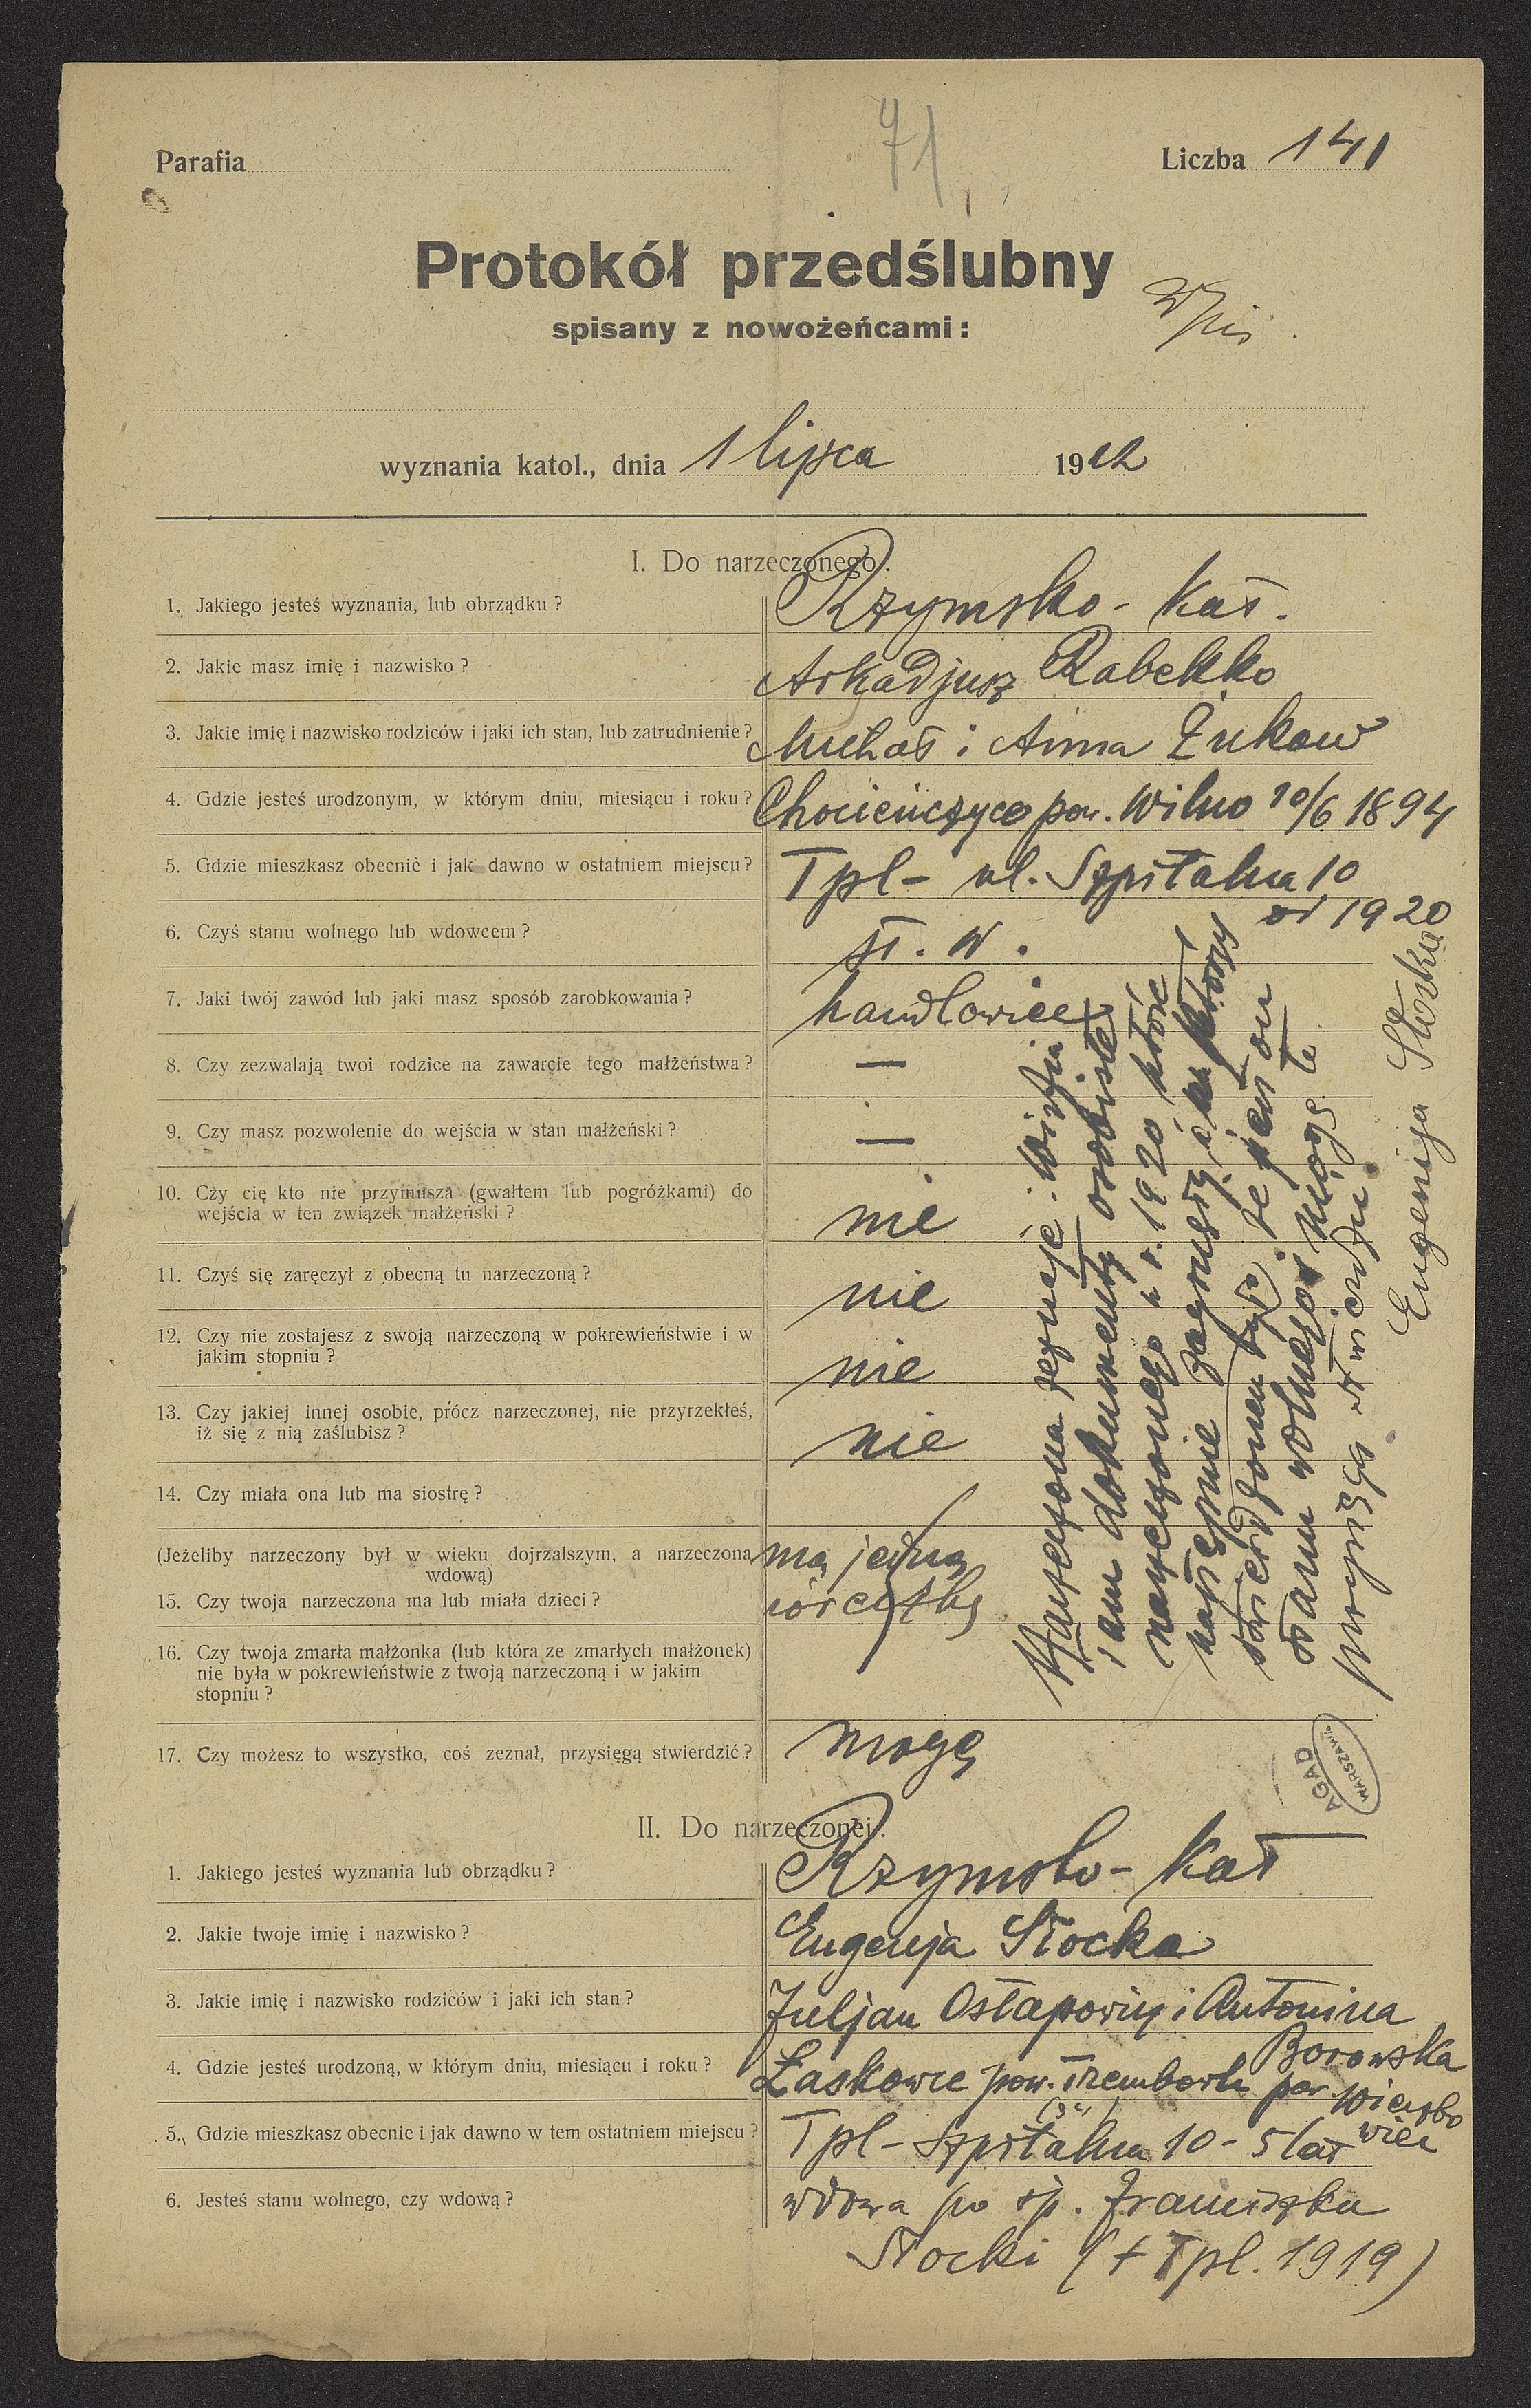 71
Parafia
Liczba 141
Protokół przedślubny
spisany z nowożeńcami:
wyznania katol., dnia 1 lipca 1922
I. Do narzeczonego:
1. Jakiego jesteś wyznania, lub obrządku? Rzymsko-kat.
2. Jakie masz imię i nazwisko? Arkadjusz Rabekko
3. Jakie imię i nazwisko rodziców i jaki ich stan, lub zatrudnienie? Michał i Anna Żukow
4. Gdzie jesteś urodzonym, w którym dniu, miesiącu i roku? Chocieńczyce pow. Wilno 10/6 1894
5. Gdzie mieszkasz obecnie i jak dawno w ostatniem miejscu? Tpl- ul. Szpitalna 10
od 1920
6. Czyś stanu wolnego lub wdowcem? st. w.
7. Jaki twój zawód lub jaki masz sposób zarobkowania? handlowiec
8. Czy zezwalają twoi rodzice na zawarcie tego małżeństwa? —
9. Czy masz pozwolenie do wejścia w stan małżeński? —
10. Czy cię kto nie przymusza (gwałtem lub pogróżkami) do
wejścia w ten związek małżeński? nie
11. Czyś się zaręczył z obecną tu narzeczoną? nie
12. Czy nie zostajesz z swoją narzeczoną w pokrewieństwie i w
jakim stopniu? nie
13. Czy jakiej innej osobie, prócz narzeczonej, nie przyrzekłeś,
iż się z nią zaślubisz? nie
14. Czy miała ona lub ma siostrę?
(Jeżeliby narzeczony był w wieku dojrzalszym, a narzeczona
wdową)
15. Czy twoja narzeczona ma lub miała dzieci? ma jedną
córeczkę
16. Czy twoja zmarła małżonka (lub która ze zmarłych małżonek)
nie była w pokrewieństwie z twoją narzeczoną i w jakim
stopniu?
17. Czy możesz to wszystko, coś zeznał, przysięgą stwierdzić? mogę
Narzeczona zeznaje: widzia
łam dokumenty osobiste
narzeczonego w r. 1920 które
następnie zagnęły, i na których
stwierdzonem było, że jest on
stanu wolnego i mogę to
przysięgą stwierdzić.
Eugenija Stocka
AGAD
WARSZAWA
II. Do narzeczonej:
1. Jakiego jesteś wyznania lub obrządku? Rzymsko-kat
2. Jakie twoje imię i nazwisko? Eugenja Stocka
3. Jakie imię i nazwisko rodziców i jaki ich stan? Juljan Ostapowicz i Antonina
Borowska
4. Gdzie jesteś urodzoną, w którym dniu, miesiącu i roku? Łaskowce pow. Trembowla par. Wierzbo
wiec
5. Gdzie mieszkasz obecnie i jak dawno w tem ostatniem miejscu? Tpl- Szpitalna 10 - 5 lat
6. Jesteś stanu wolnego, czy wdową? wdowa po śp. Franciszku
Stocki († Tpl. 1919)